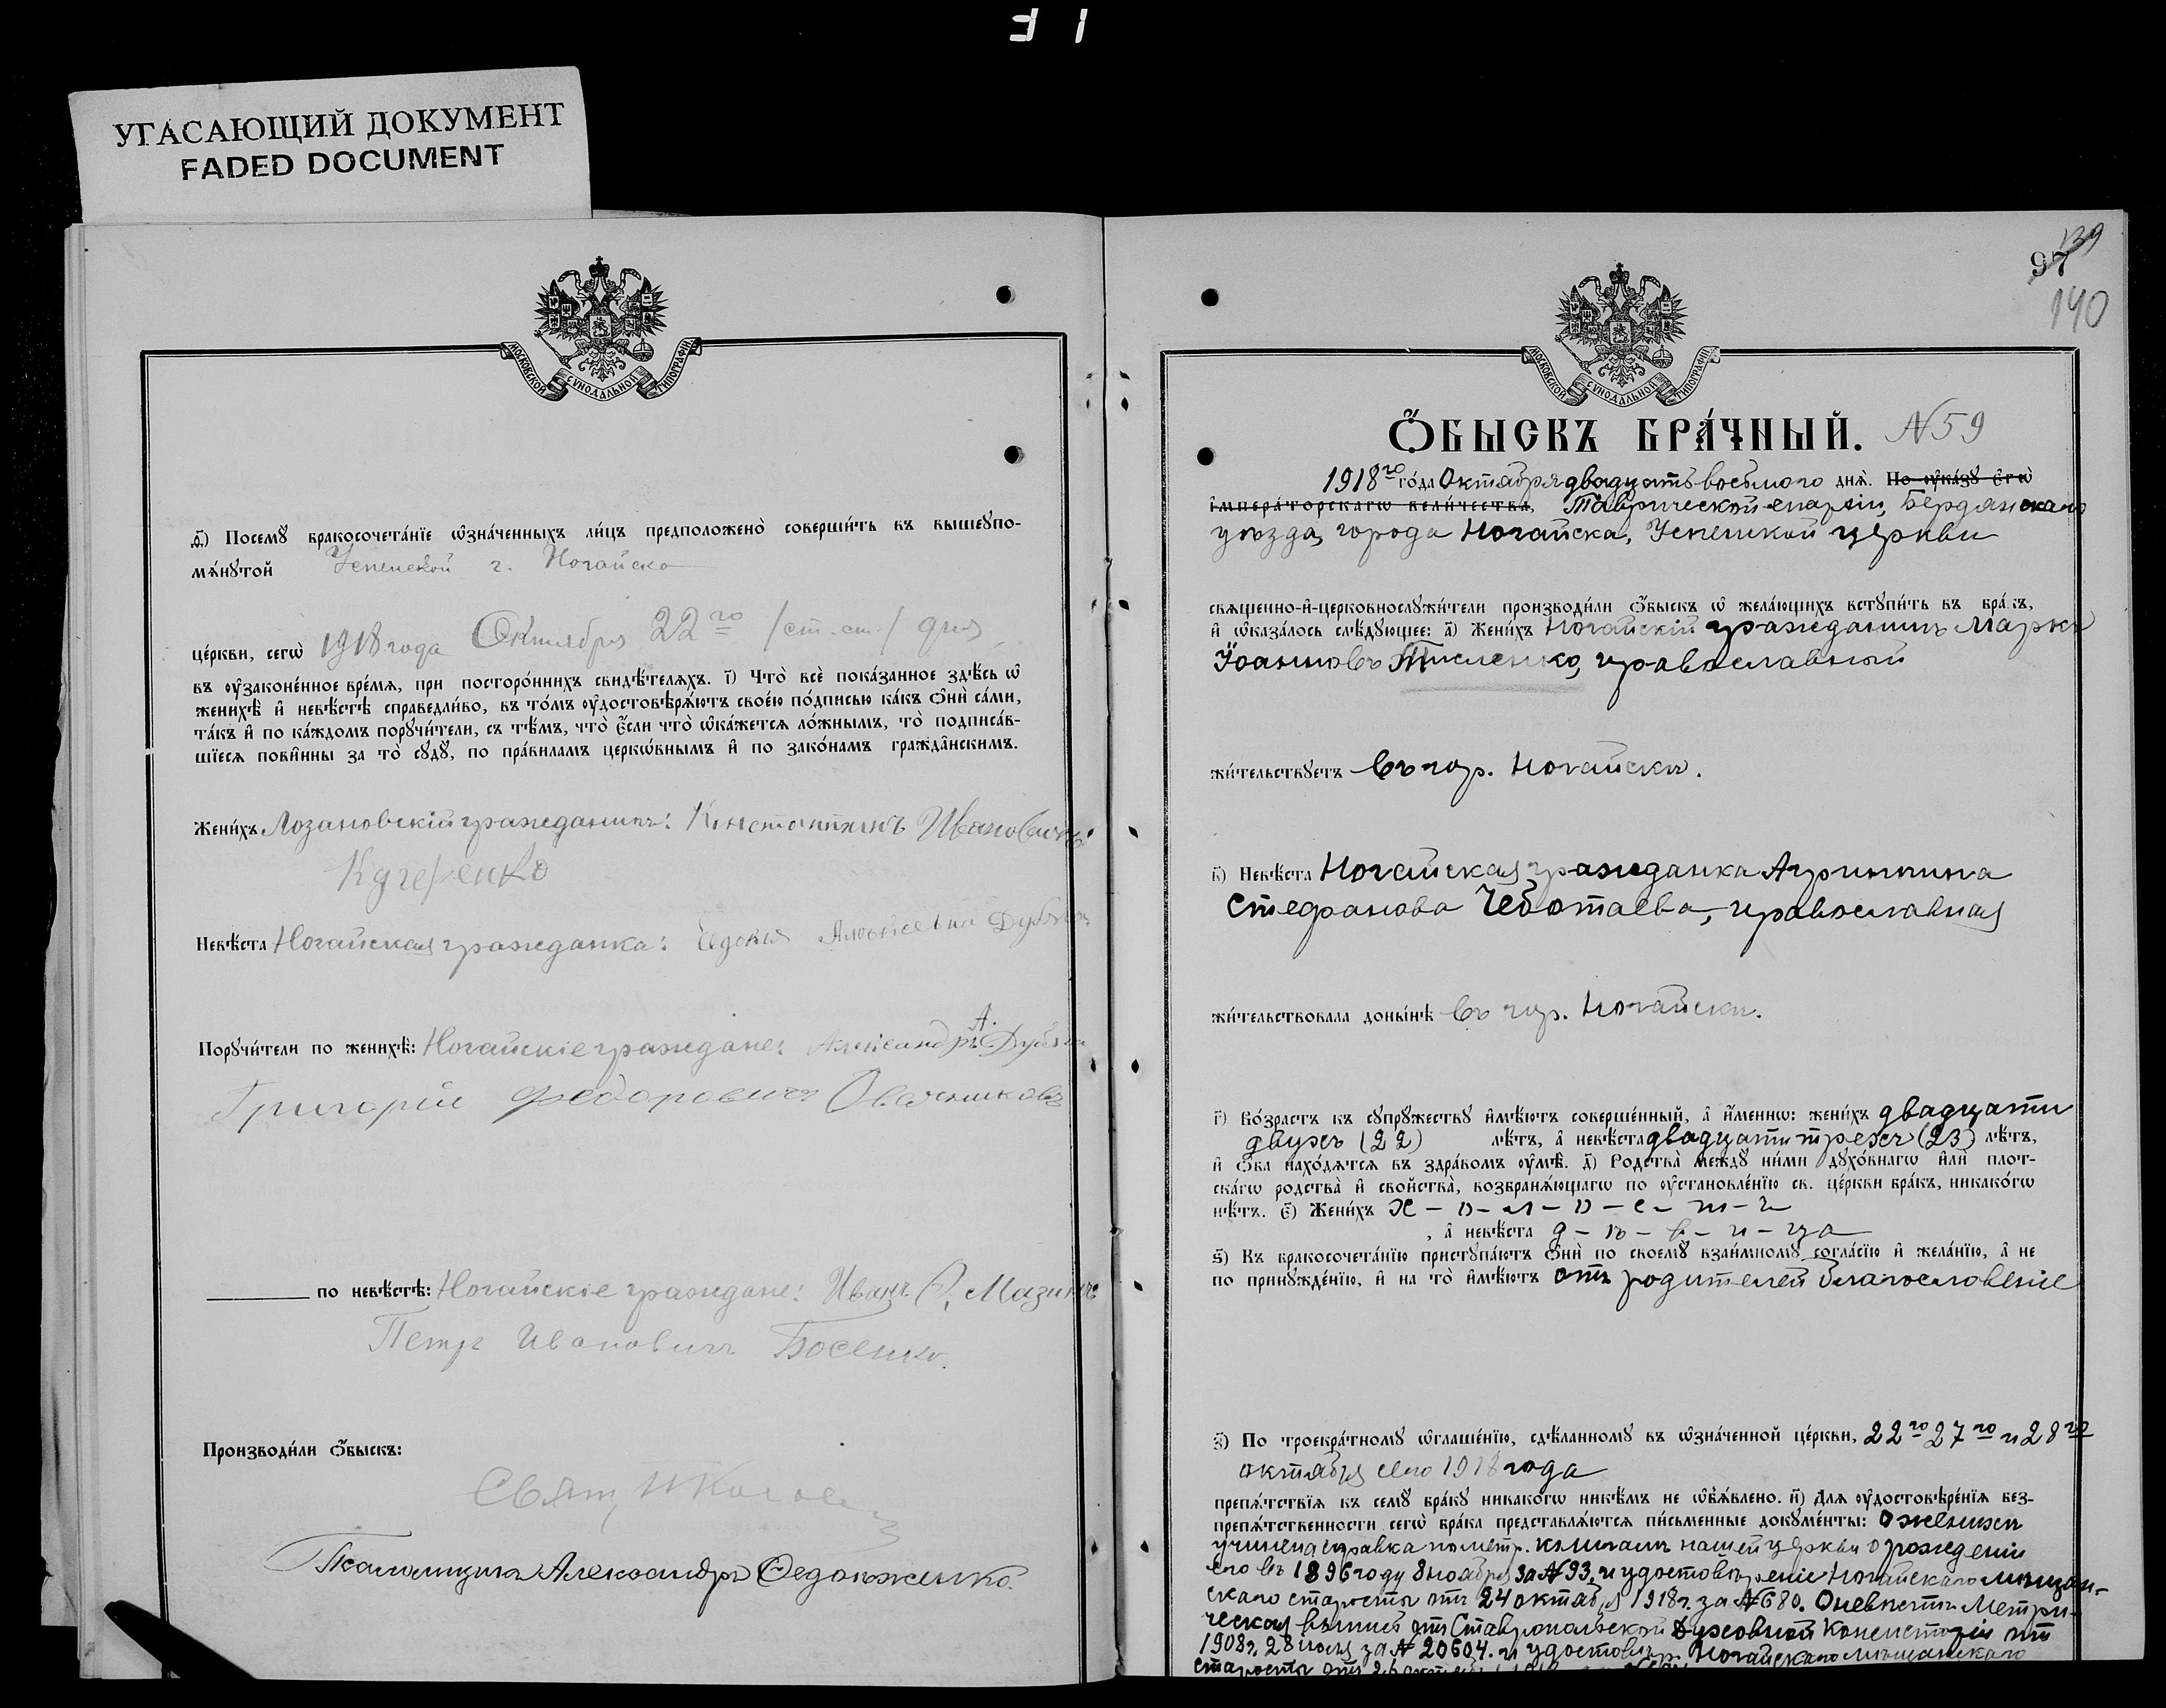 УГАСАЮЩИЙ ДОКУМЕНТ
FADED DOCUMENT
МОСКОВСКОЙ СѴНОДАЛЬНОЙ ТИПОГРАФІИ
д҃) Посемꙋ бракосочета́нїе ѡзна́ченныхъ ли́цъ предположено̀ соверши́ть въ вышеꙋпо-
мѧ́нꙋтой Успенской г. Ногайска
це́ркви, сегѡ̀ 1918 года Октября 22го /ст. ст./ дня
въ ᲂу҆законе́нное вре́мѧ, при посторо́ннихъ свидѣ́телѧхъ. і҃) Что̀ всѐ пока́занное здѣ́сь ѡ҆
женихѣ̀ и҆ невѣ́стѣ справедли́во, въ то́мъ ᲂу҆достовѣрѧ́ютъ свое́ю по́дписью ка́къ ѻ҆нѝ са́ми,
та́къ и҆ по ка́ждомъ порꙋчи́тели, съ тѣ́мъ, что̀ є҆́сли что̀ ѡ҆ка́жетсѧ ло́жнымъ, то̀ подписа́в-
шїесѧ пови́нны за то̀ сꙋдꙋ̀, по пра́виламъ церкѡ́внымъ и҆ по зако́намъ гражда́нскимъ.
Жени́хъ Лозановскій гражданинъ: Константинъ Ивановичъ
Кучеренко
Невѣ́ста Ногайская гражданка:
Порꙋчи́тели по женихѣ̀: Ногайскіе граждане: Александръ А.
Григорій Федоровичъ Овчинниковъ
по невѣ́стѣ: Ногайскіе граждане: Иванъ
Петръ Ивановичъ Босенко.
Производи́ли ѻ҆́быскъ:
Свящ.
Псаломщикъ Александръ
97
139
140
МОСКОВСКОЙ СѴНОДАЛЬНОЙ ТИПОГРАФІИ
Ѻ҆́БЫСКЪ БРА́ЧНЫЙ. N 59
1918го го́да Октября двадцать восьмого днѧ̀. По ᲂу҆ка́зꙋ є҆гѡ̀
і҆мпера́торскагѡ вели́чества, Таврической епархіи, Бердянскаго
уѣзда, города Ногайска, Успенской церкви
свѧще́нно-и҆-церковнослꙋжи́тели производи́ли ѻ҆́быскъ ѡ҆ жела́ющихъ встꙋпи́ть въ бра́къ,
и҆ ѡ҆каза́лось слѣ́дꙋющее: а҃) Жени́хъ Ногайскій гражданинъ Маркъ
Іоанновъ православный
жи́тельствꙋетъ въ гор. Ногайскѣ.
в҃) Невѣ́ста Ногайская гражданка Агриппина
Стефанова Чеботаева, православная
жи́тельствовала донынѣ въ гор. Ногайскѣ.
г҃) Во́зрастъ къ сꙋпрꙋжествꙋ и҆мѣ́ютъ соверше́нный, а҆ и҆́меннѡ: жени́хъ двадцати
двухъ (22) лѣ́тъ, а҆ невѣ́ста двадцати трехъ (23) лѣ́тъ,
и҆ ѻ҆́ба нахо́дѧтсѧ въ здра́вомъ ᲂу҆мѣ̀. д҃) Родства̀ междꙋ̀ ни́ми дꙋхо́внагѡ и҆лѝ плот-
ска́гѡ родства̀ и҆ свойства̀, возбранѧ́ющагѡ по ᲂу҆становле́нїю св. це́ркви бра́къ, никако́гѡ
нѣ́тъ. є҃) Жени́хъ х – о – л – о – с – т – ъ
, а҆ невѣ́ста д – ѣ – в – и – ца
ѕ҃) Къ бракосочета́нїю пристꙋпа́ютъ ѻ҆нѝ по своемꙋ̀ взаи́мномꙋ согла́сїю и҆ жела́нїю, а҆ не
по принꙋжде́нїю, и҆ на то̀ и҆мѣ́ютъ отъ родителей благословеніе
з҃) По троекра́тномꙋ ѡ҆глаше́нїю, сдѣ́ланномꙋ въ ѡ҆зна́ченной це́ркви, 22го 27го и 28го
октября сего 1918 года
препѧ́тствїѧ къ семꙋ̀ бра́кꙋ никако́гѡ никѣ́мъ не ѡ҆б̾ѧ́влено. и҃) Длѧ ᲂу҆достовѣре́нїѧ без-
препѧ́тственности сегѡ̀ бра́ка представлѧ́ютсѧ пи́сьменные докꙋме́нты: о женихѣ
учинена справка по метр. книгамъ нашей церкви о рожденіи
его въ 1896 году 8 ноября за № 93, и удостовѣреніе Ногайскаго мѣщан-
скаго старосты отъ 24 октября 1918 г. за № 680. О невѣстѣ Метри-
ческая выпись отъ Ставропольской Духовной Консисторіи отъ
1908 г. 28 іюля за № 20604. и удостовѣр. Ногайскаго мѣщанскаго
старосты отъ